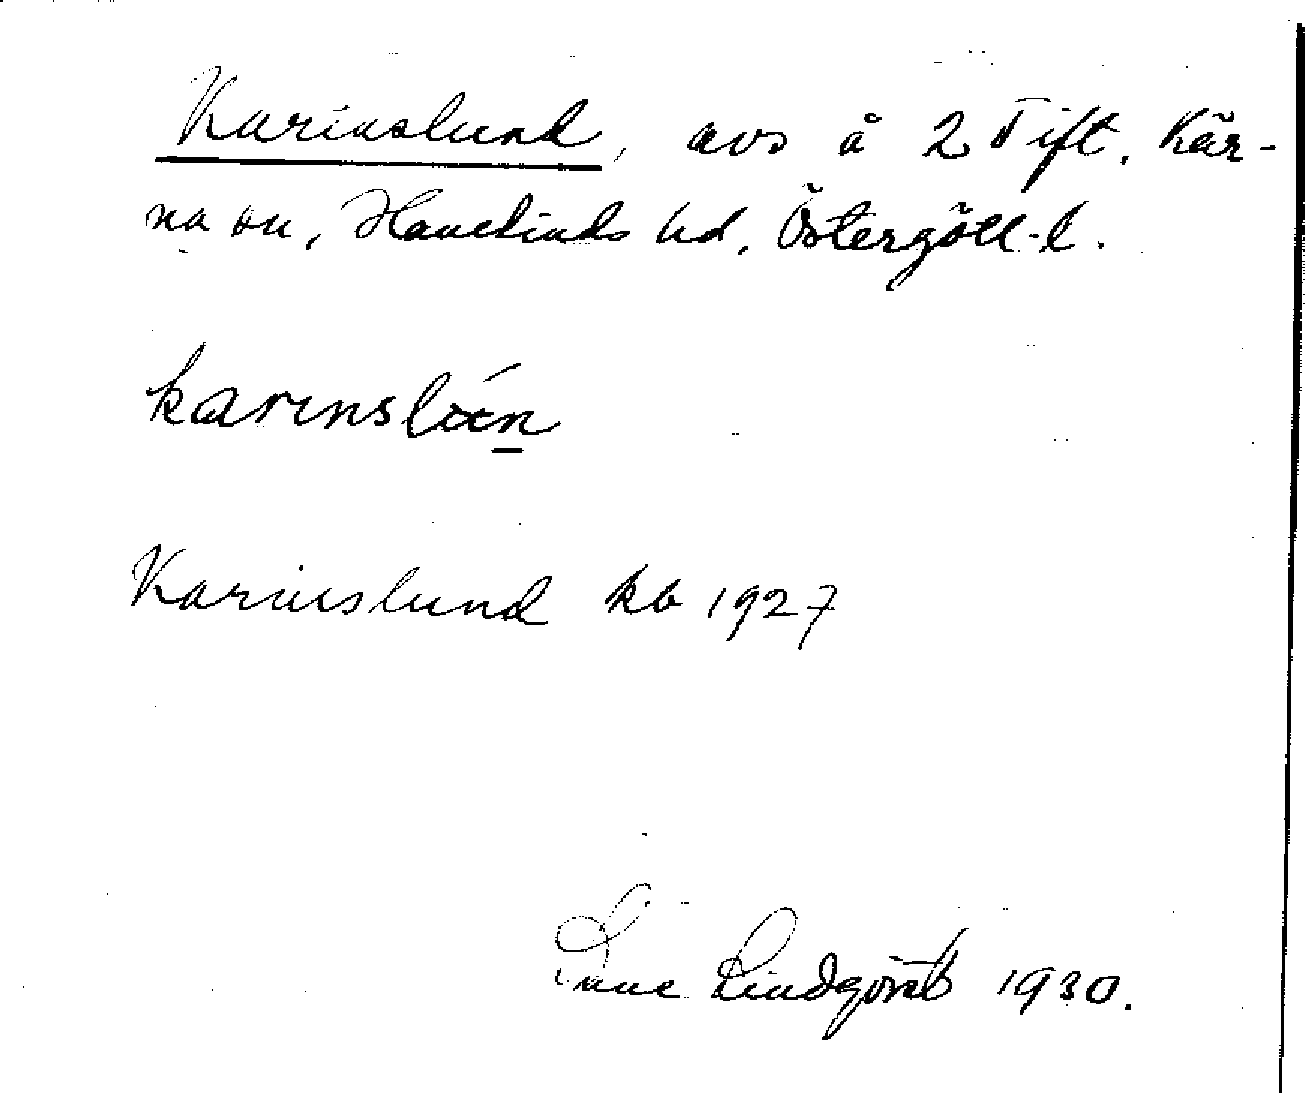 Karinslund, avs å 2 Tift, Kär-
na sn, Hanekinds hd, Östergötl. l.
karinslún
Karinslund kb 1927
Lindqvist 1930.